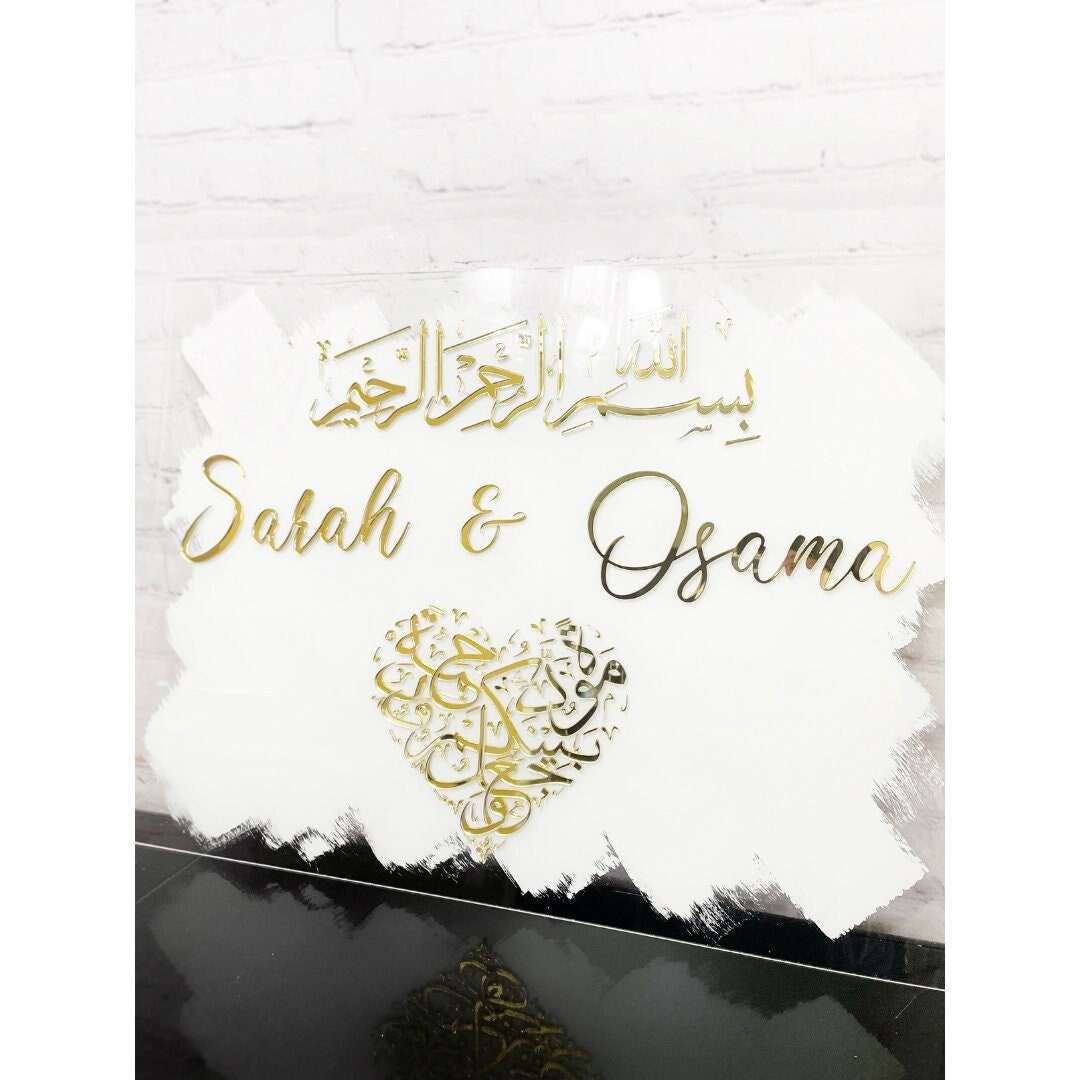 بِسْمِ اللهِ الرَّحْمٰنِ الرَّحِيْمِ
Sarah & Osama
وجعل بينكم مودّة ورحمة